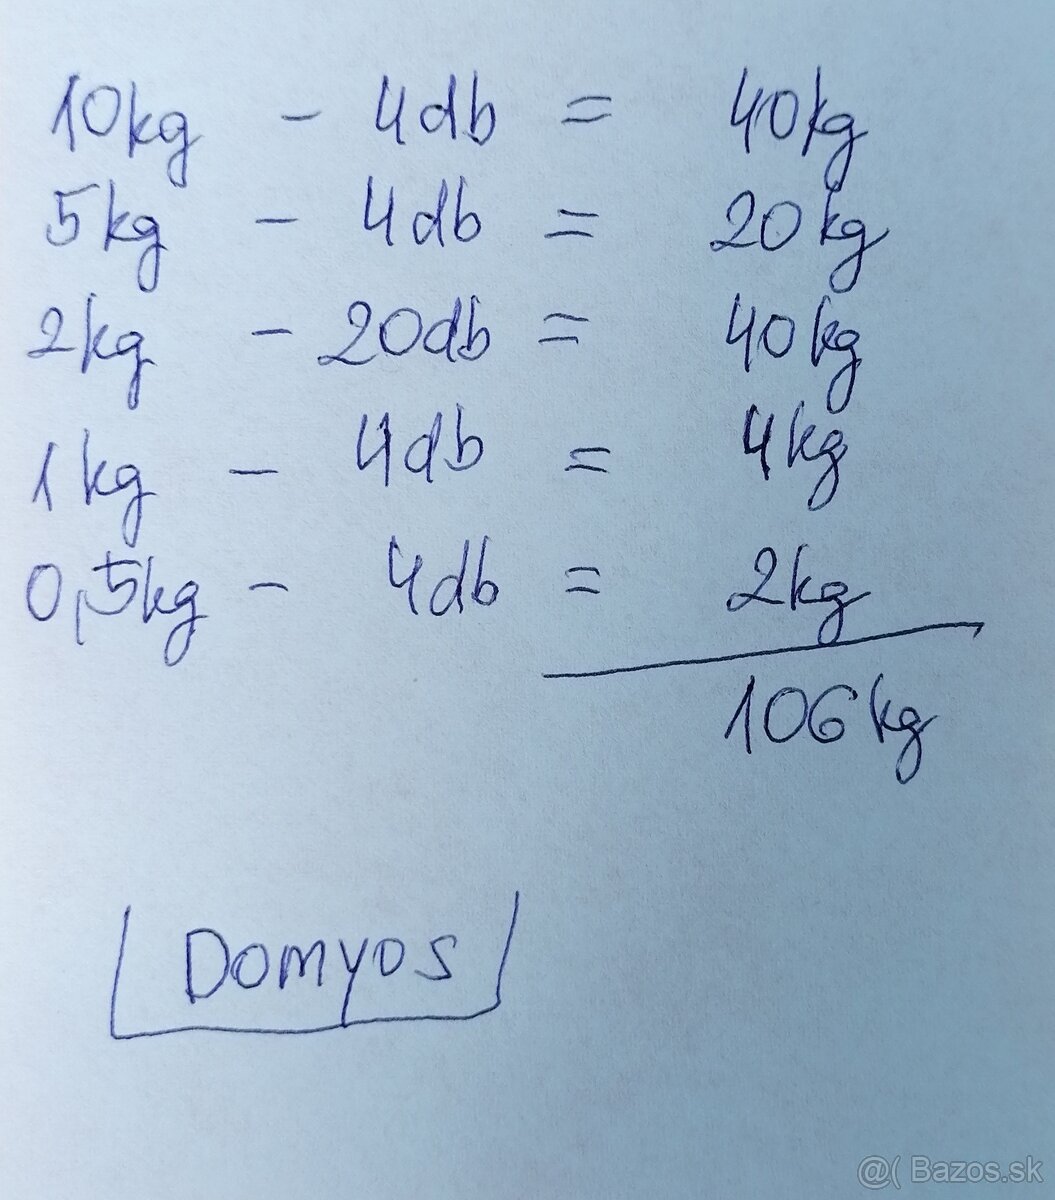 10kg - 4db = 40kg
5kg - 4db = 20kg
2kg - 20db = 40kg
1kg - 4db = 4kg
0,5kg - 4db = 2kg
106kg
Domyos
@( Bazos.sk